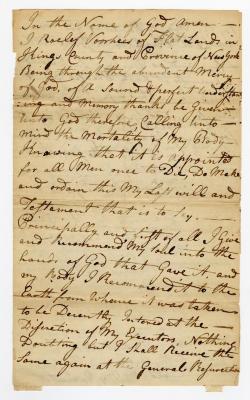 In the Name of God Amen
I Roelof Voorhees of Flat Lands in
Kings County and Provence of New York
Being through the abundant Mercy
of God, of a Sound & perfect
and Memory thanks be Given
unto God therefore Calling into
Mind the Mortality of My Body
Knowing that it is appointed
for all Men once to Die Do Make
and ordain this My Last will and
Testament that is to Say
Principally and first of all I Give
and recommend My Soul into the
hands of God that Gave it, and
my Body I Recommend it to the
Earth from Whence it was taken
to be Decently Intered at the
Discretion of My Executors, Nothing
Doubting but I Shall Receive the
Same again at the General Resurection